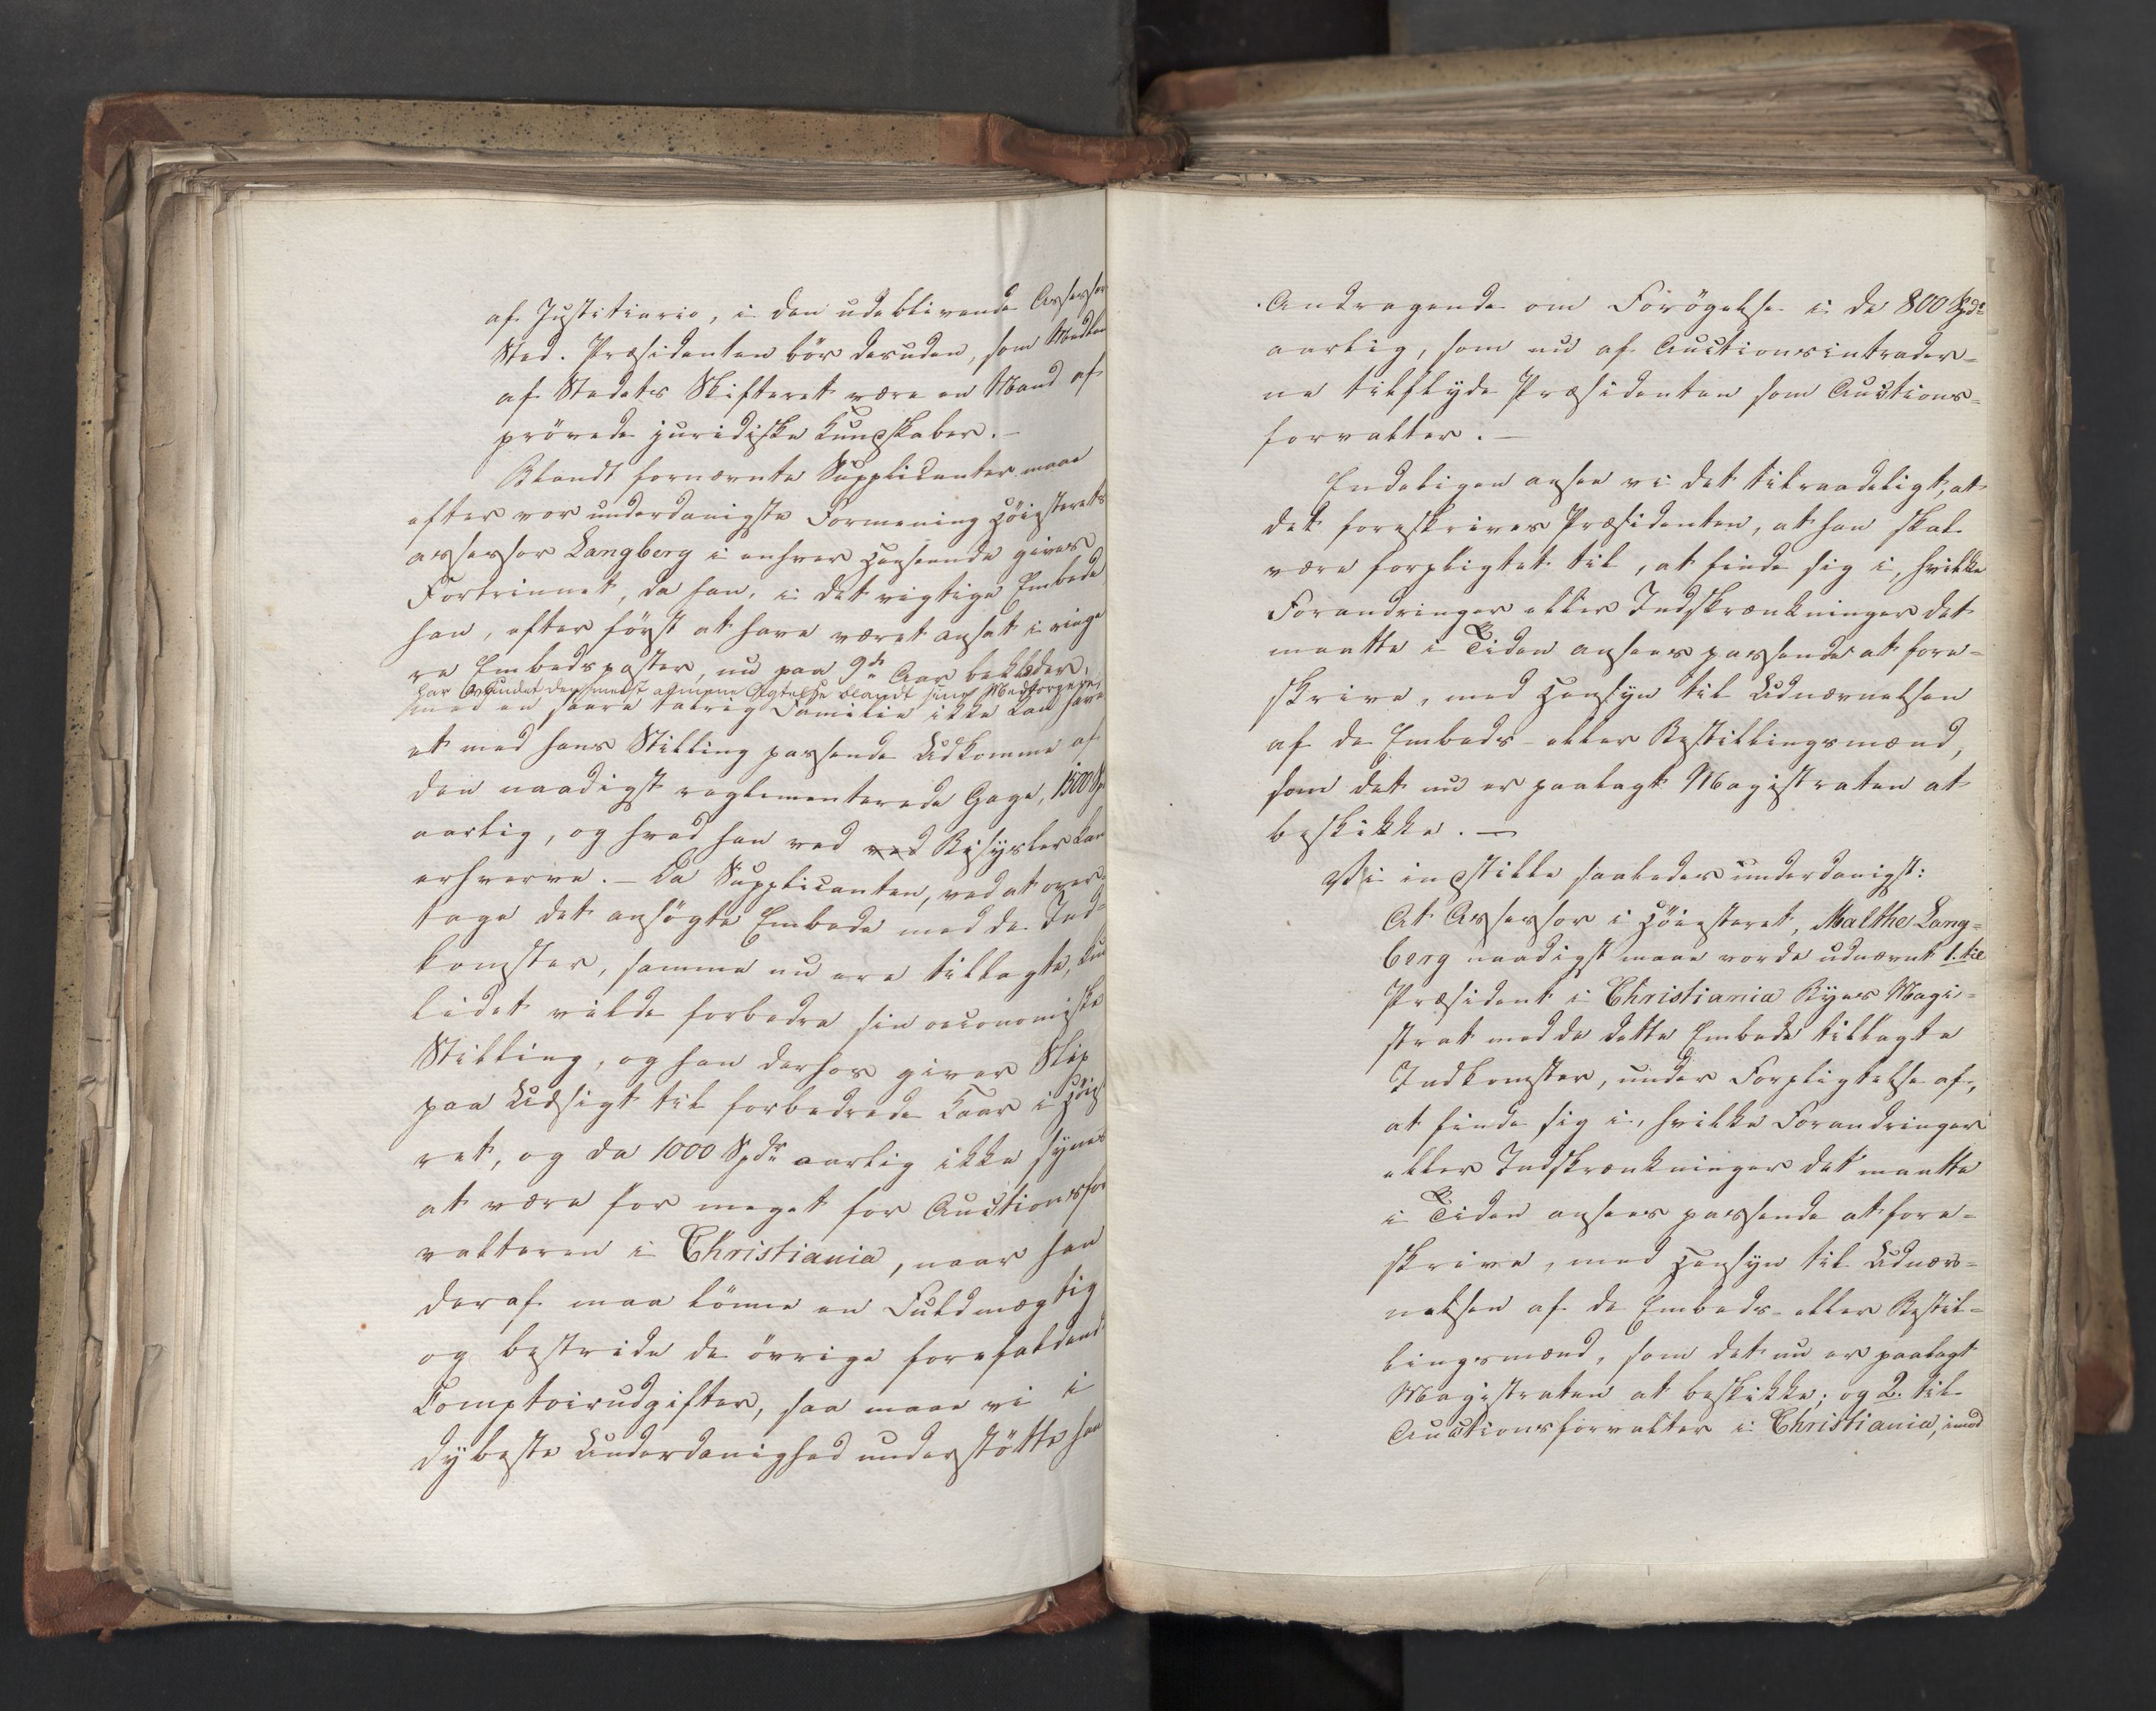 af Justitiario, i den udeblivende Assessors
Sted. Præsidenten bör desuden, som Medlem
af Stadets Skifteret være en Mand af
prövede juridiske Kundskaber. –
Blandt fornævnte Supplicanter maae
efter vor underdanigste Formening Höiesterets
assessor Langberg i enhver Henseende gives
Fortrinnet, da han, i det vigtige Embede
han, efter först at have været ansat i ringe
re Embedsposter, nu paa 9de Aar beklæder,
har vundet den meest almene Agtelse blandt sine Medborgere,
med en saare talrig Familie ikke kan have
et med hans Stilling passende Udkomme af
den naadigst reglementerede Gage, 1500 Sp
aarlig, og hvad han ved ved Bisysler kan
erhverve. – Da Supplicanten, ved at over
tage det ansögte Embede med de Ind-
komster, samme nu ere tillagte, kun
lidet vilde forbedre sin oeconomiske
Stilling, og han derhos giver Slip
paa Udsigt til forbedrede Kaar i Höieste
ret, og da 1000 Spdr aarlig ikke synes
at være for meget for Auctionsfor
valteren i Christiania, naar han
deraf maa lönne en Fuldmægtig
og bestride de övrige forefaldende
Comptoirudgifter, saa maae vi i
dybeste Underdanighed understötte hans
Andragende om Forögelse i de 800 Spdr
aarlig, som nu af Auctionsintrader-
ne tilflyde Præsidenten som Auctions-
forvalter. –
Endeligen ansee vi det tilraadeligt, at
det foreskrives Præsidenten, at han skal
være forpligtet til, at finde sig i, hvilke
Forandringer eller Indskrænkninger det
maatte i Tiden ansees passende at fore-
skrive, med Hensyn til Udnævnelsen
af de Embeds- eller Bestillingsmænd,
som det nu er paalagt Magistraten at
beskikke. –
Vi indstille saaledes underdanigst:
At Assessor i Höiesteret, Malthe Lang-
berg naadigst maae vorde udnævnt 1. til
Præsident i Christiania Byes Magi-
strat med de dette Embede tillagte
Indkomster, under Forpligtelse af,
at finde sig i, hvilke Forandringer
eller Indskrænkninger det maatte
i Tiden ansees passende at fore-
skrive, med Hensyn til Udnæv-
nelsen af de Embeds- eller Bestil-
lingsmænd, som det nu er paalagt
Magistraten at beskikke; og 2. til
Auctionsforvalter i Christiania, imod